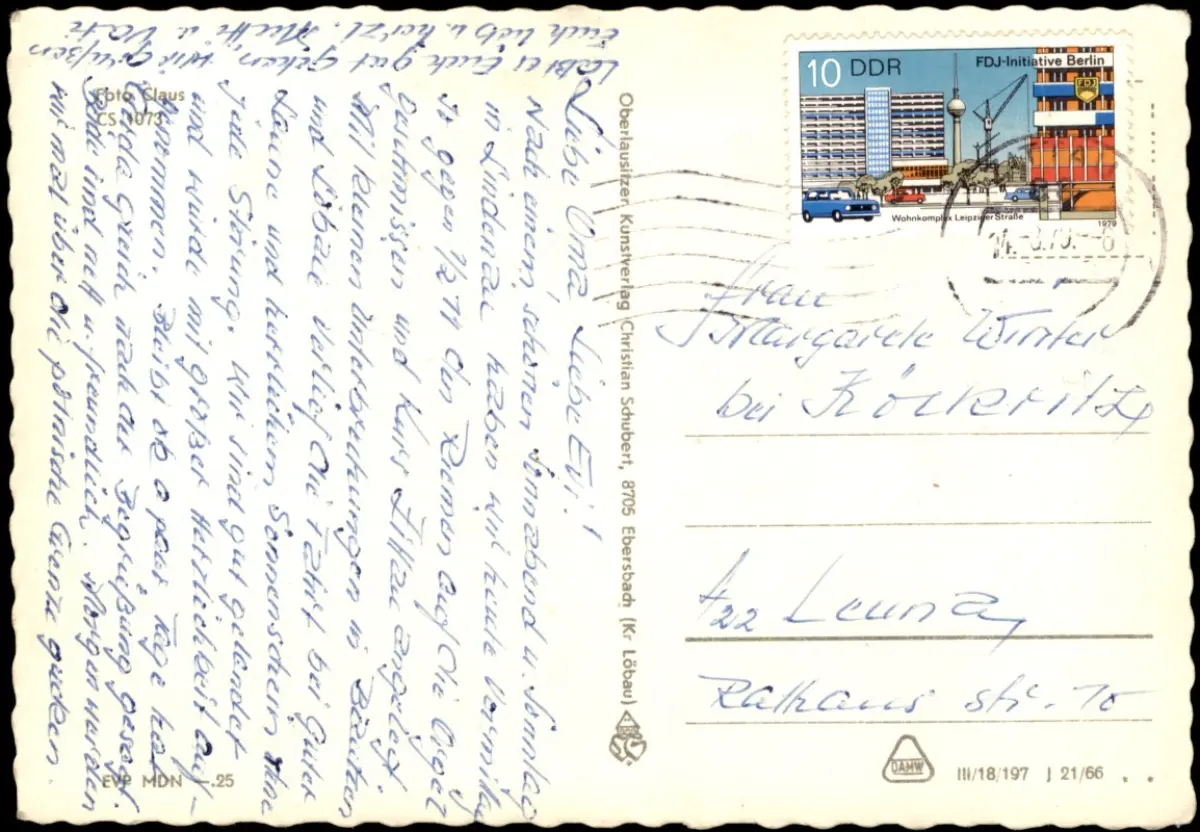 Liebe Oma, Liebe Evi!
Nach einem schönen Sonnabend u. Sonntag
in Lindenau haben wir heute vormittag
½ 11 den Riemen auf die Orgel
und Kurs Zittau angelegt.
Mit kleinen Unterbrechungen in Bautzen
und Löbau verlief die Fahrt bei guter
Laune und herrlichem Sonnenschein ohne
jede Störung. Wir sind gut gelandet
und wurde mit großer Herzlichkeit auf-
genommen. Bleibt ob a paar Tage hat
gleich nach der Begrüßung gesagt.
sind nett u. freundlich. Morgen werden
wir mal über die polnische Grenze gucken.
Laßt es Euch gut gehen, wir grüßen
Euch lieb u. herzl. Mutti u. Vati
Foto Claus
CS 1073
EVP MDN —.25
Oberlausitzer Kunstverlag Christian Schubert, 8705 Ebersbach (Kr. Löbau)
10 DDR
FDJ-Initiative Berlin
FDJ
Wohnkomplex Leipziger Straße
1979
Frau
Margarete Winter
bei Köckritz
422 Leuna
Rathausstr. 10
DAMW
III/18/197 J 21/66